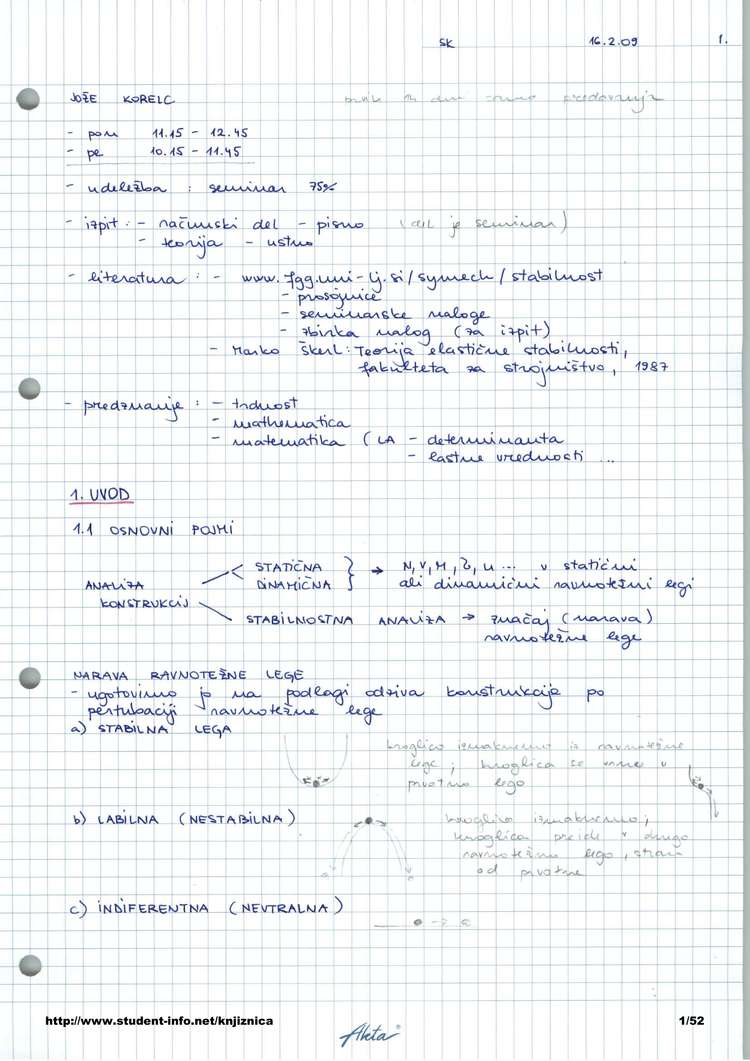 SK 16.2.09 1.
JOŽE KORELC predavanje
- pon 11.15 - 12.45
- pe 10.15 - 11.45
- udeležba : seminar 75%
- izpit : - računski del - pisno (del je seminar)
- teorija - ustno
- literatura : - www.fgg.uni-lj.si/symech/stabilnost
- prosojnice
- seminarske naloge
- zbirka nalog (za izpit)
- Marko Škerl: Teorija elastične stabilnosti,
fakulteta za strojništvo, 1987
- predznanje : - trdnost
- mathematica
- matematika (LA - determinanta
- lastne vrednosti ...
1. UVOD
1.1 OSNOVNI POJMI
STATIČNA → N, V, M, u ... v statični
ANALIZA DINAMIČNA ali dinamični ravnotežni legi
KONSTRUKCIJ
STABILNOSTNA ANALIZA → značaj (narava)
ravnotežne lege
NARAVA RAVNOTEŽNE LEGE
- ugotovimo jo na podlagi odziva konstrukcije po
pertubaciji ravnotežne lege
a) STABILNA LEGA
kroglico izmaknemo iz ravnotežne
lege ; kroglica se vrne v
prvotno lego
b) LABILNA (NESTABILNA)
kroglico izmaknemo ;
kroglica preide v drugo
ravnotežno lego , stran
od prvotne
c) INDIFERENTNA (NEVTRALNA)
http://www.student-info.net/knjiznica 1/52
Akta